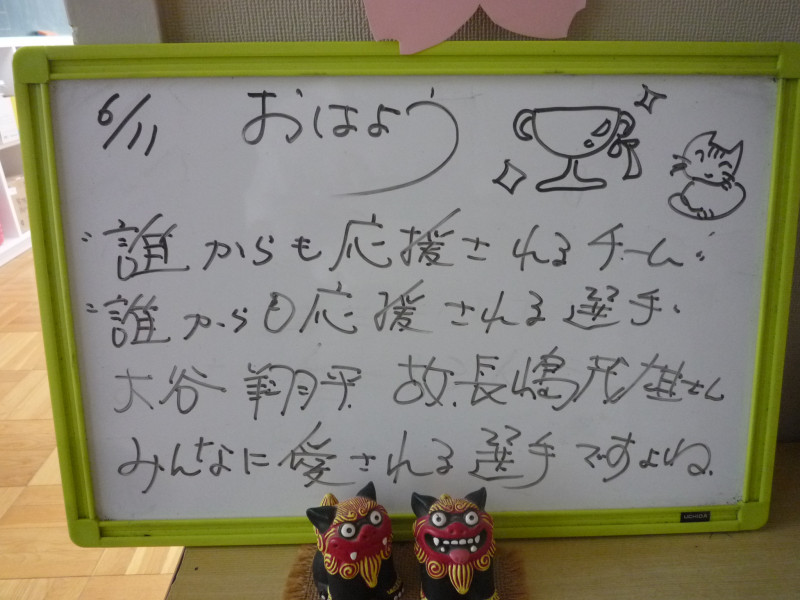 6/11 おはよう
"誰からも応援されるチーム"
"誰からも応援される選手.
大谷翔平 故.長嶋茂雄さん
みんなに愛される選手ですよね.
UCHIDA